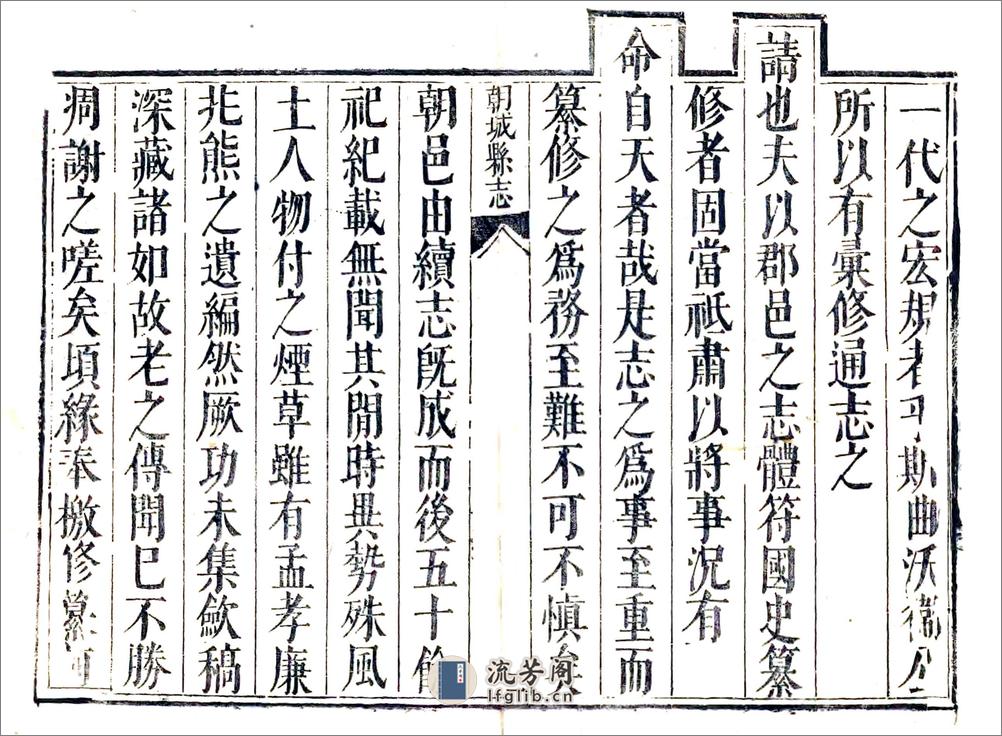 一代之宏規者乎斯曲沃衞公
所以有彙修通志之
請也夫以郡邑之志體符國史纂
修者固當祗肅以將事況有
命自天者哉是志之爲事至重而
纂修之爲務至難不可不慎矣
朝城縣志
朝邑由續志既成而後五十餘
祀紀載無聞其閒時異勢殊風
土人物付之煙草雖有孟孝廉
兆熊之遺編然厥功未集斂稿
深藏諸如故老之傳聞已不勝
凋謝之嗟矣頃緣奉檄修纂
流芳阁
lfglib.cn